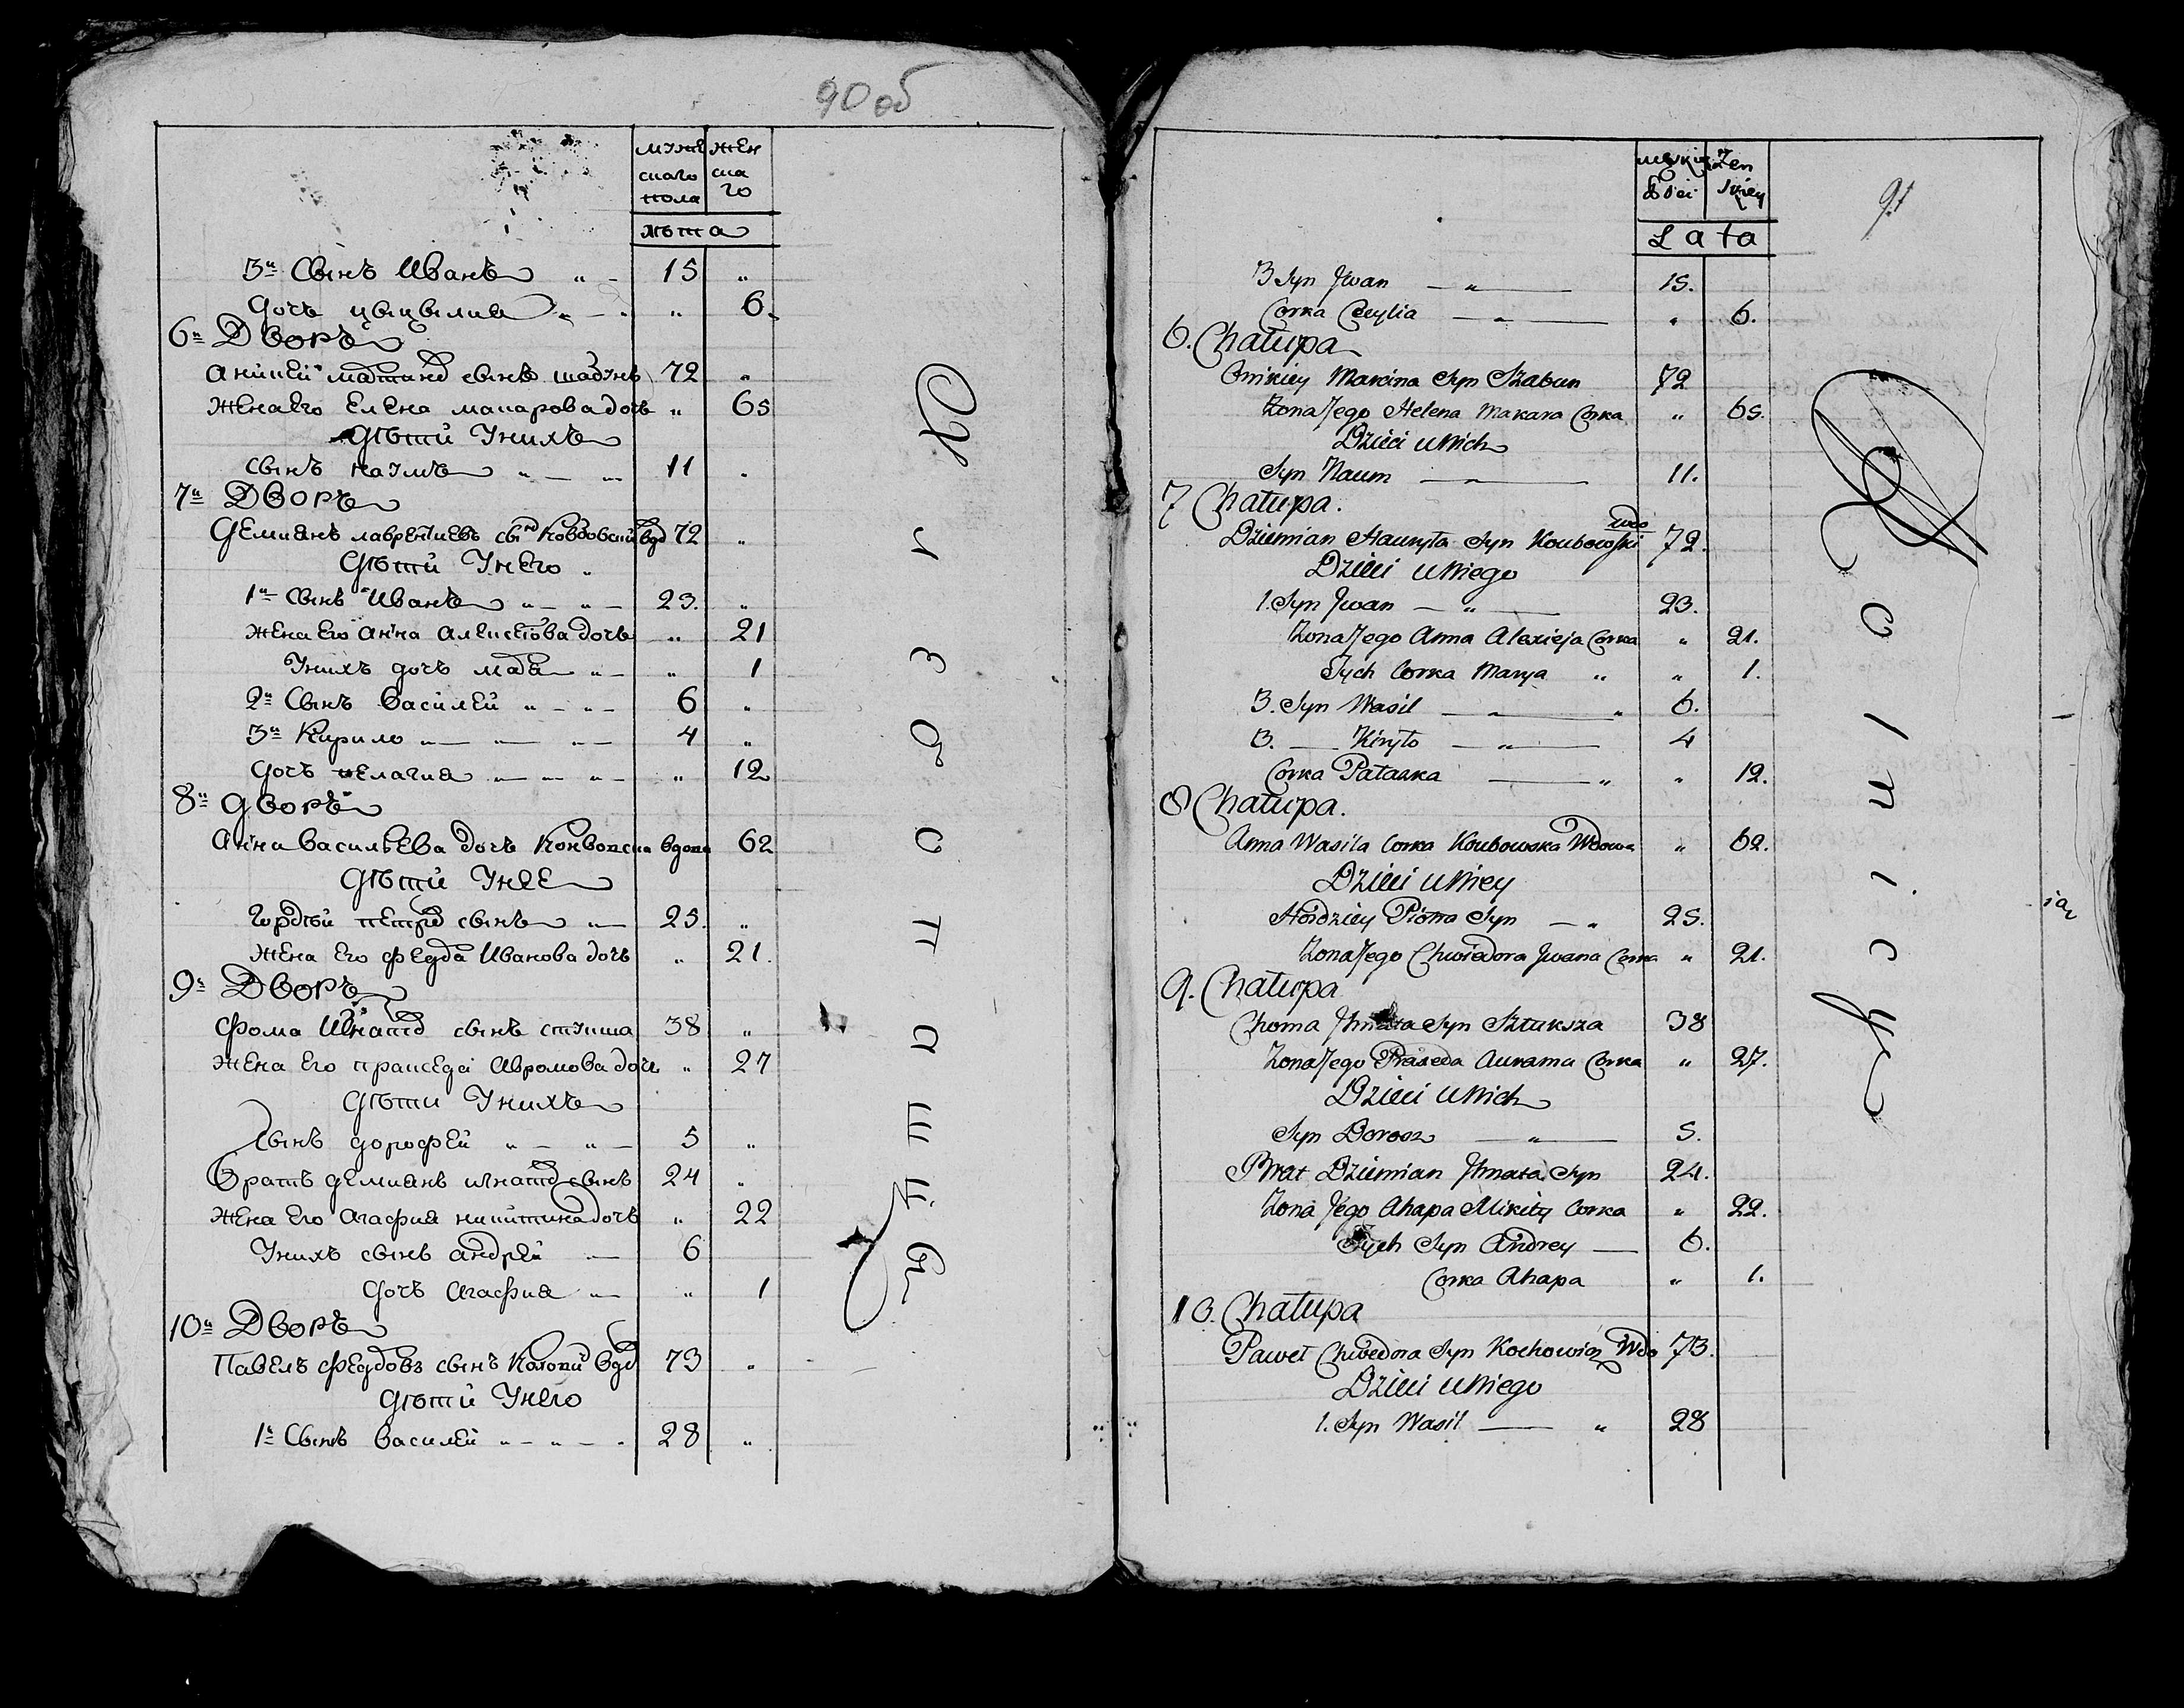 90 об
мужескаго пола
женскаго
лѣта
3й Сынъ Иванъ " 15 "
дочь цецелия " " 6.
6й Дворъ
аникей сынъ шабунъ 72 "
жена его елена макарова дочь " 65
дѣти у нихъ
сынъ наумъ " 11 "
7й Дворъ
демианъ лаврентиевъ сынъ вдо 72 "
дѣти у него "
1й сынъ Иванъ " " 23. "
жена его анна алексеева дочь " 21
у нихъ дочь " " 1
2й Сынъ василей " " 6 "
3й Кирило " " " 4 "
дочь пелагия " " " " 12
8й дворъ
анна васильева дочь вдова 62
дѣти у нее
гордѣй сынъ " 25. "
жена его Иванова дочь " 21.
9й Дворъ
фома сынъ стукша 38 "
жена его пракседа авромова дочь " 27
дѣти у нихъ
сынъ дорофей " " 5 "
братъ демианъ сынъ 24 "
жена его агафия никитина дочь " 22
у нихъ сынъ андрей 6
дочь агафия " " 1
10й Дворъ
Павелъ сынъ вдо 73 "
дѣти у него
1й Сынъ василей " " 28 "
91
męzkiey płci
żenskiey
Lata
3 Syn Jwan " 15.
Corka Cecylia " " 6.
6. Chałupa
Onikiey Marcina Syn Szabun 72
Zona Jego Helena Makara Corka " 65.
Dzieci u Nich
Syn Naum " 11.
7 Chałupa.
wdo
Dziemian Hauryła Syn Koubowski 72.
Dzieci u Niego
1. Syn Jwan " 23.
Zona Jego Anna Alexieja Corka " 21.
Tych Corka Marya " " 1.
3. Syn Wasil " " 6.
3. Kiryło " 4
Corka Pałaska " " 12.
8 Chałupa.
Anna Wasila Corka Koubowska Wdowa " 62.
Dzieci u Niey
Hordziey Piotra Syn " 25.
Zona Jego Chwiedora Jwana Corka " 21.
9. Chałupa
Choma Jhnata Syn Sztuksza 38
Zona Jego Praxeda Aurama Corka " 27.
Dzieci u Nich
Syn Dorosz " 5.
Brat Dziemian Jhnata Syn 24.
Zona Jego Ahapa Mikity Corka " 22.
Tych Syn Andrey 6.
Corka Ahapa " 1.
10. Chałupa
Paweł Chwedora Syn Kochowicz Wdo 73.
Dzieci u Niego
1. Syn Wasil " 28